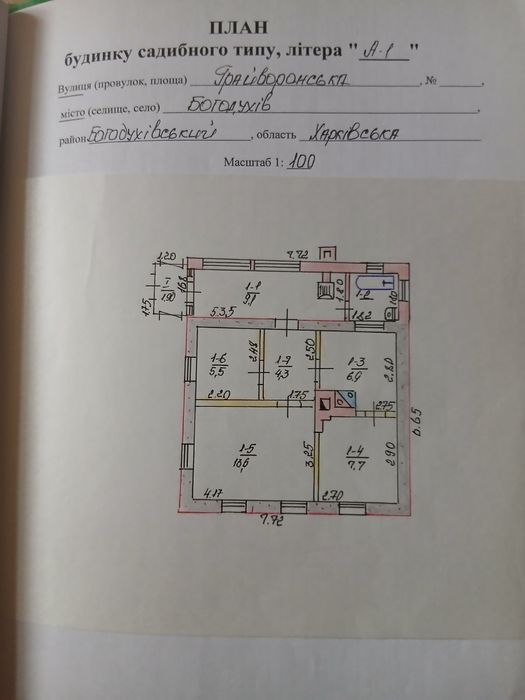 ПЛАН
будинку садибного типу, літера "А-1"
Вулиця (провулок, площа) Грайворонська, № ,
місто (селище, село) Богодухів,
район Богодухівський, область Харківська
Масштаб 1: 100
1.20
7.72
I
1.90
1.75
1.68
1-1
9,1
5.35
1.80
1-2
1.82
1-6
5,5
2.48
2.20
1-7
4,3
2.50
1.75
1-3
6,9
2.80
2.75
1-5
13,6
3.25
4.17
1-4
7,7
2.90
2.70
6.65
7.72